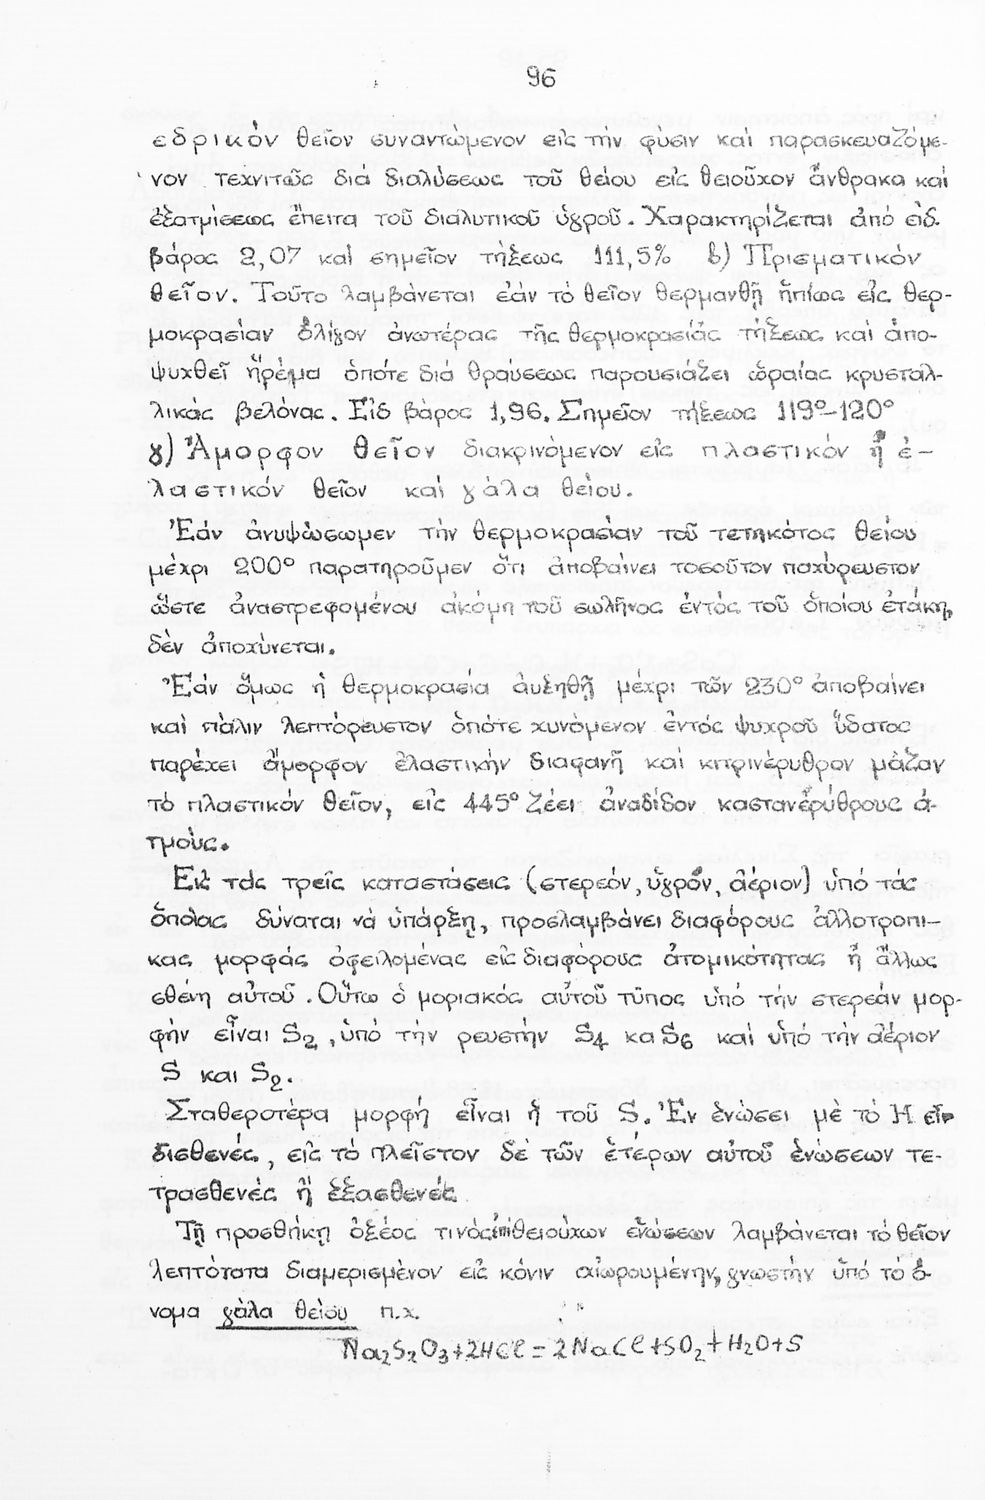 96
εδρικὸν θεῖον συναντώμενον εἰς τὴν φύσιν καὶ παρασκευαζόμε-
νον τεχνιτῶς διὰ διαλύσεως τοῦ θείου εἰς θειοῦχον ἄνθρακα καὶ
ἐξατμίσεως ἔπειτα τοῦ διαλυτικοῦ ὑγροῦ. Χαρακτηρίζεται ἀπὸ εἰδ.
βάρος 2,07 καὶ σημεῖον τήξεως 111,5% β) Πρισματικόν
θεῖον. Τοῦτο λαμβάνεται ἐάν τὸ θεῖον θερμανθῇ ἠπίως εἰς θερ-
μοκρασίαν ὀλίγον ἀνωτέρας τῆς θερμοκρασίας τήξεως καὶ ἀπο-
ψυχθεῖ ἠρέμα ὁπότε διὰ θραύσεως παρουσιάζει ὡραίας κρυσταλ-
λικάς βελόνας. Εἰδ βάρος 1,96. Σημεῖον τήξεως 119°-120°
γ) Ἄμορφον θεῖον διακρινόμενον εἰς πλαστικόν ἤ ἐ-
λαστικόν θεῖον καὶ γάλα θείου.
Ἐάν ἀνυψώσωμεν τὴν θερμοκρασίαν τοῦ τετηκότος θείου
μέχρι 200° παρατηροῦμεν ὅτι ἀποβαίνει τοσοῦτον παχύρευστον
ὥστε ἀναστρεφομένου ἀκόμη τοῦ σωλῆνος ἐντός τοῦ ὁποίου ἐτάκη,
δὲν ἀποχύνεται.
Ἐάν ὅμως ἡ θερμοκρασία αὐξηθῇ μέχρι τῶν 230° ἀποβαίνει
καὶ πάλιν λεπτόρευστον ὁπότε χυνόμενον ἐντός ψυχροῦ ὕδατος
παρέχει ἄμορφον ἐλαστικὴν διαφανῆ καὶ κιτρινέρυθρον μᾶζαν
τὸ πλαστικόν θεῖον, εἰς 445° ζέει ἀναδίδον καστανέρύθρους ἀ-
τμούς.
Εἰς τὰς τρεῖς καταστάσεις (στερεόν, ὑγρόν, ἀέριον) ὑπό τάς
ὁποίας δύναται νὰ ὑπάρξῃ, προσλαμβάνει διαφόρους ἀλλοτροπι-
κας μορφάς ὀφειλομένας εἰς διαφόρους ἀτομικότητας ἤ ἄλλως
σθένη αὐτοῦ. Οὕτω ὁ μοριακός αὐτοῦ τύπος ὑπό τὴν στερεάν μορ-
φήν εἶναι S₂, ὑπό τὴν ρευστήν S₄ κα S₆ καὶ ὑπό τὴν ἀέριον
S και S₂.
Σταθεροτέρα μορφή εἶναι ἡ τοῦ S. Ἐν ἑνώσει μὲ τὸ Η εἶ-
δισθενές, εἰς τὸ πλεῖστον δὲ τῶν ἑτέρων αὐτοῦ ἑνώσεων τε-
τρασθενές ἤ ἑξασθενές
Τῇ προσθήκῃ ὀξέος τινός ἐπὶ θειούχων ἑνώσεων λαμβάνεται τὸ θεῖον
λεπτότατα διαμερισμένον εἰς κόνιν αἰωρουμένην, γνωστήν ὑπό τὸ ὄ-
νομα γάλα θείου π.χ.
Na₂S₂O₃+2HCl=2NaCl+SO₂+H₂O+S